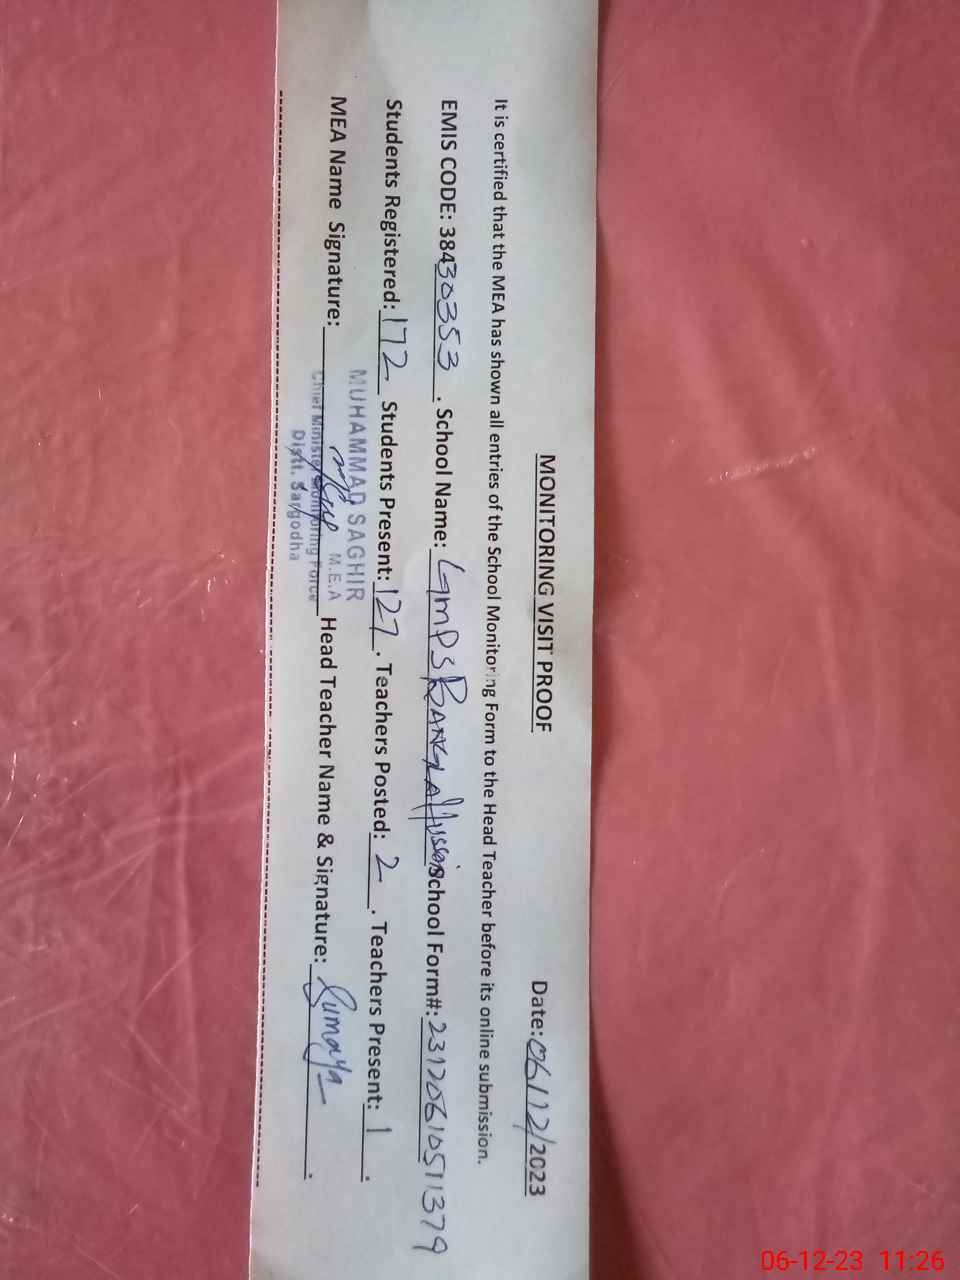 MONITORING VISIT PROOF
Date: 06/12/2023
It is certified that the MEA has shown all entries of the School Monitoring Form to the Head Teacher before its online submission.
EMIS CODE: 38430353. School Name: GMPS BANGLA Hussain School Form#: 23120610511379
Students Registered: 172 Students Present: 127. Teachers Posted: 2. Teachers Present: 1.
MEA Name Signature: Head Teacher Name & Signature: Sumaya.
MUHAMMAD SAGHIR
M.E.A
Chief Minister Monitoring Force
Distt. Sargodha
06-12-23 11:26